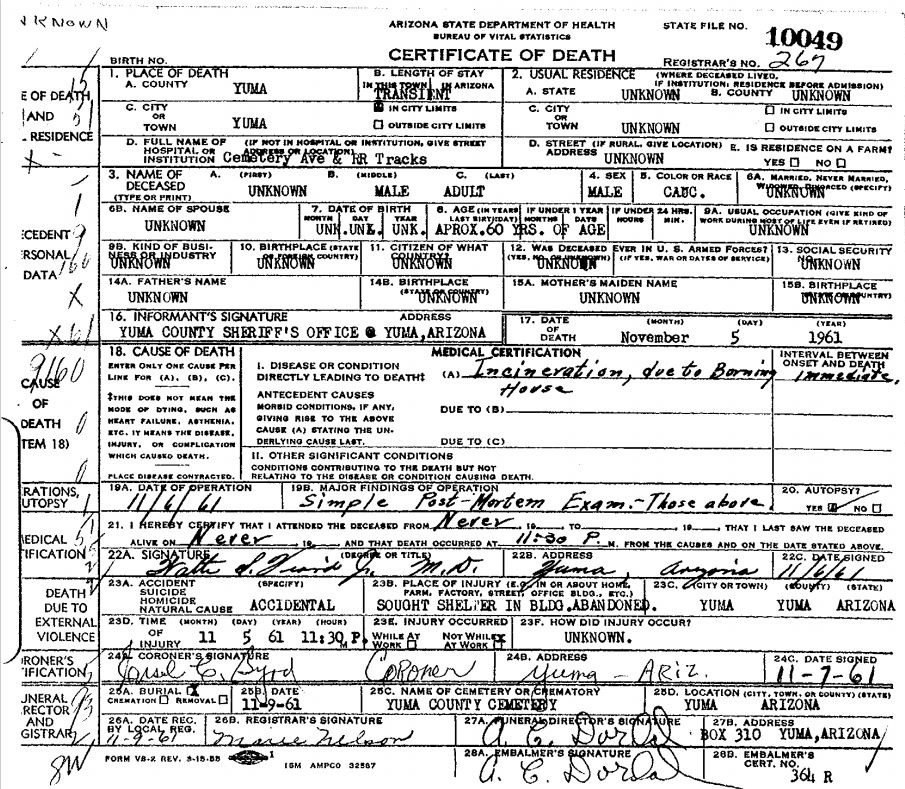 UNKNOWN
ARIZONA STATE DEPARTMENT OF HEALTH
BUREAU OF VITAL STATISTICS
CERTIFICATE OF DEATH
STATE FILE NO. 10049
REGISTRAR'S NO. 267
BIRTH NO.
1. PLACE OF DEATH
A. COUNTY YUMA
B. LENGTH OF STAY
IN THIS TOWN IN ARIZONA
TRANSIENT
2. USUAL RESIDENCE (WHERE DECEASED LIVED. IF INSTITUTION: RESIDENCE BEFORE ADMISSION)
A. STATE UNKNOWN B. COUNTY UNKNOWN
C. CITY OR TOWN YUMA
IN CITY LIMITS
OUTSIDE CITY LIMITS
C. CITY OR TOWN UNKNOWN
IN CITY LIMITS
OUTSIDE CITY LIMITS
D. FULL NAME OF HOSPITAL OR INSTITUTION (IF NOT IN HOSPITAL OR INSTITUTION, GIVE STREET ADDRESS OR LOCATION)
Cemetery Ave & RR Tracks
D. STREET ADDRESS (IF RURAL, GIVE LOCATION) UNKNOWN
E. IS RESIDENCE ON A FARM?
YES NO
3. NAME OF DECEASED (TYPE OR PRINT)
A. (FIRST) B. (MIDDLE) C. (LAST)
UNKNOWN MALE ADULT
4. SEX MALE
5. COLOR OR RACE CAUC.
6A. MARRIED, NEVER MARRIED, WIDOWED, DIVORCED (SPECIFY)
UNKNOWN
6B. NAME OF SPOUSE UNKNOWN
7. DATE OF BIRTH
MONTH DAY YEAR
UNK. UNK. UNK.
8. AGE (IN YEARS LAST BIRTHDAY) IF UNDER 1 YEAR MONTHS DAYS IF UNDER 24 HRS. HOURS MIN.
APROX. 60 YRS. OF AGE
9A. USUAL OCCUPATION (GIVE KIND OF WORK DURING MOST OF LIFE EVEN IF RETIRED)
UNKNOWN
9B. KIND OF BUSINESS OR INDUSTRY
UNKNOWN
10. BIRTHPLACE (STATE OR FOREIGN COUNTRY)
UNKNOWN
11. CITIZEN OF WHAT COUNTRY?
UNKNOWN
12. WAS DECEASED EVER IN U. S. ARMED FORCES?
(YES, NO, OR UNKNOWN) (IF YES, WAR OR DATES OF SERVICE)
UNKNOWN
13. SOCIAL SECURITY NO.
UNKNOWN
14A. FATHER'S NAME
UNKNOWN
14B. BIRTHPLACE (STATE OR COUNTRY)
UNKNOWN
15A. MOTHER'S MAIDEN NAME
UNKNOWN
15B. BIRTHPLACE (STATE OR COUNTRY)
UNKNOWN
16. INFORMANT'S SIGNATURE ADDRESS
YUMA COUNTY SHERIFF'S OFFICE @ YUMA, ARIZONA
17. DATE OF DEATH (MONTH) (DAY) (YEAR)
November 5 1961
18. CAUSE OF DEATH
ENTER ONLY ONE CAUSE PER LINE FOR (A), (B), (C).
‡THIS DOES NOT MEAN THE MODE OF DYING, SUCH AS HEART FAILURE, ASTHENIA, ETC. IT MEANS THE DISEASE, INJURY, OR COMPLICATION WHICH CAUSED DEATH.
PLACE DISEASE CONTRACTED.
MEDICAL CERTIFICATION
I. DISEASE OR CONDITION DIRECTLY LEADING TO DEATH‡ (A) Incineration, due to Borning House
INTERVAL BETWEEN ONSET AND DEATH
immediate.
ANTECEDENT CAUSES
MORBID CONDITIONS, IF ANY, GIVING RISE TO THE ABOVE CAUSE (A) STATING THE UNDERLYING CAUSE LAST.
DUE TO (B)
DUE TO (C)
II. OTHER SIGNIFICANT CONDITIONS
CONDITIONS CONTRIBUTING TO THE DEATH BUT NOT RELATING TO THE DISEASE OR CONDITION CAUSING DEATH.
19A. DATE OF OPERATION
11/6/61
19B. MAJOR FINDINGS OF OPERATION
Simple Post-Mortem Exam. - Those above.
20. AUTOPSY?
YES NO
21. I HEREBY CERTIFY THAT I ATTENDED THE DECEASED FROM Never, 19 TO 19, THAT I LAST SAW THE DECEASED
ALIVE ON Never 19, AND THAT DEATH OCCURRED AT 11:30 P. M. FROM THE CAUSES AND ON THE DATE STATED ABOVE.
22A. SIGNATURE (DEGREE OR TITLE)
M.D.
22B. ADDRESS
Yuma, Arizona
22C. DATE SIGNED
11/6/61
23A. ACCIDENT SUICIDE HOMICIDE NATURAL CAUSE (SPECIFY)
ACCIDENTAL
23B. PLACE OF INJURY (E.G., IN OR ABOUT HOME, FARM, FACTORY, STREET, OFFICE BLDG., ETC.)
SOUGHT SHELTER IN BLDG. ABANDONED.
23C. (CITY OR TOWN) (COUNTY) (STATE)
YUMA YUMA ARIZONA
23D. TIME OF INJURY (MONTH) (DAY) (YEAR) (HOUR)
11 5 61 11:30 P. M
23E. INJURY OCCURRED
WHILE AT WORK NOT WHILE AT WORK
23F. HOW DID INJURY OCCUR?
UNKNOWN.
24A. CORONER'S SIGNATURE
Byrd Coroner
24B. ADDRESS
Yuma - ARIZ.
24C. DATE SIGNED
11-7-61
25A. BURIAL CREMATION REMOVAL
25B. DATE
11-9-61
25C. NAME OF CEMETERY OR CREMATORY
YUMA COUNTY CEMETERY
25D. LOCATION (CITY, TOWN, OR COUNTY) (STATE)
YUMA ARIZONA
26A. DATE REC. BY LOCAL REG.
11-9-61
26B. REGISTRAR'S SIGNATURE
Marie Nelson
27A. FUNERAL DIRECTOR'S SIGNATURE
27B. ADDRESS
BOX 310 YUMA, ARIZONA
28A. EMBALMER'S SIGNATURE
28B. EMBALMER'S CERT. NO.
364 R
FORM VS-2 REV. 3-15-55 15M AMPCO 32587